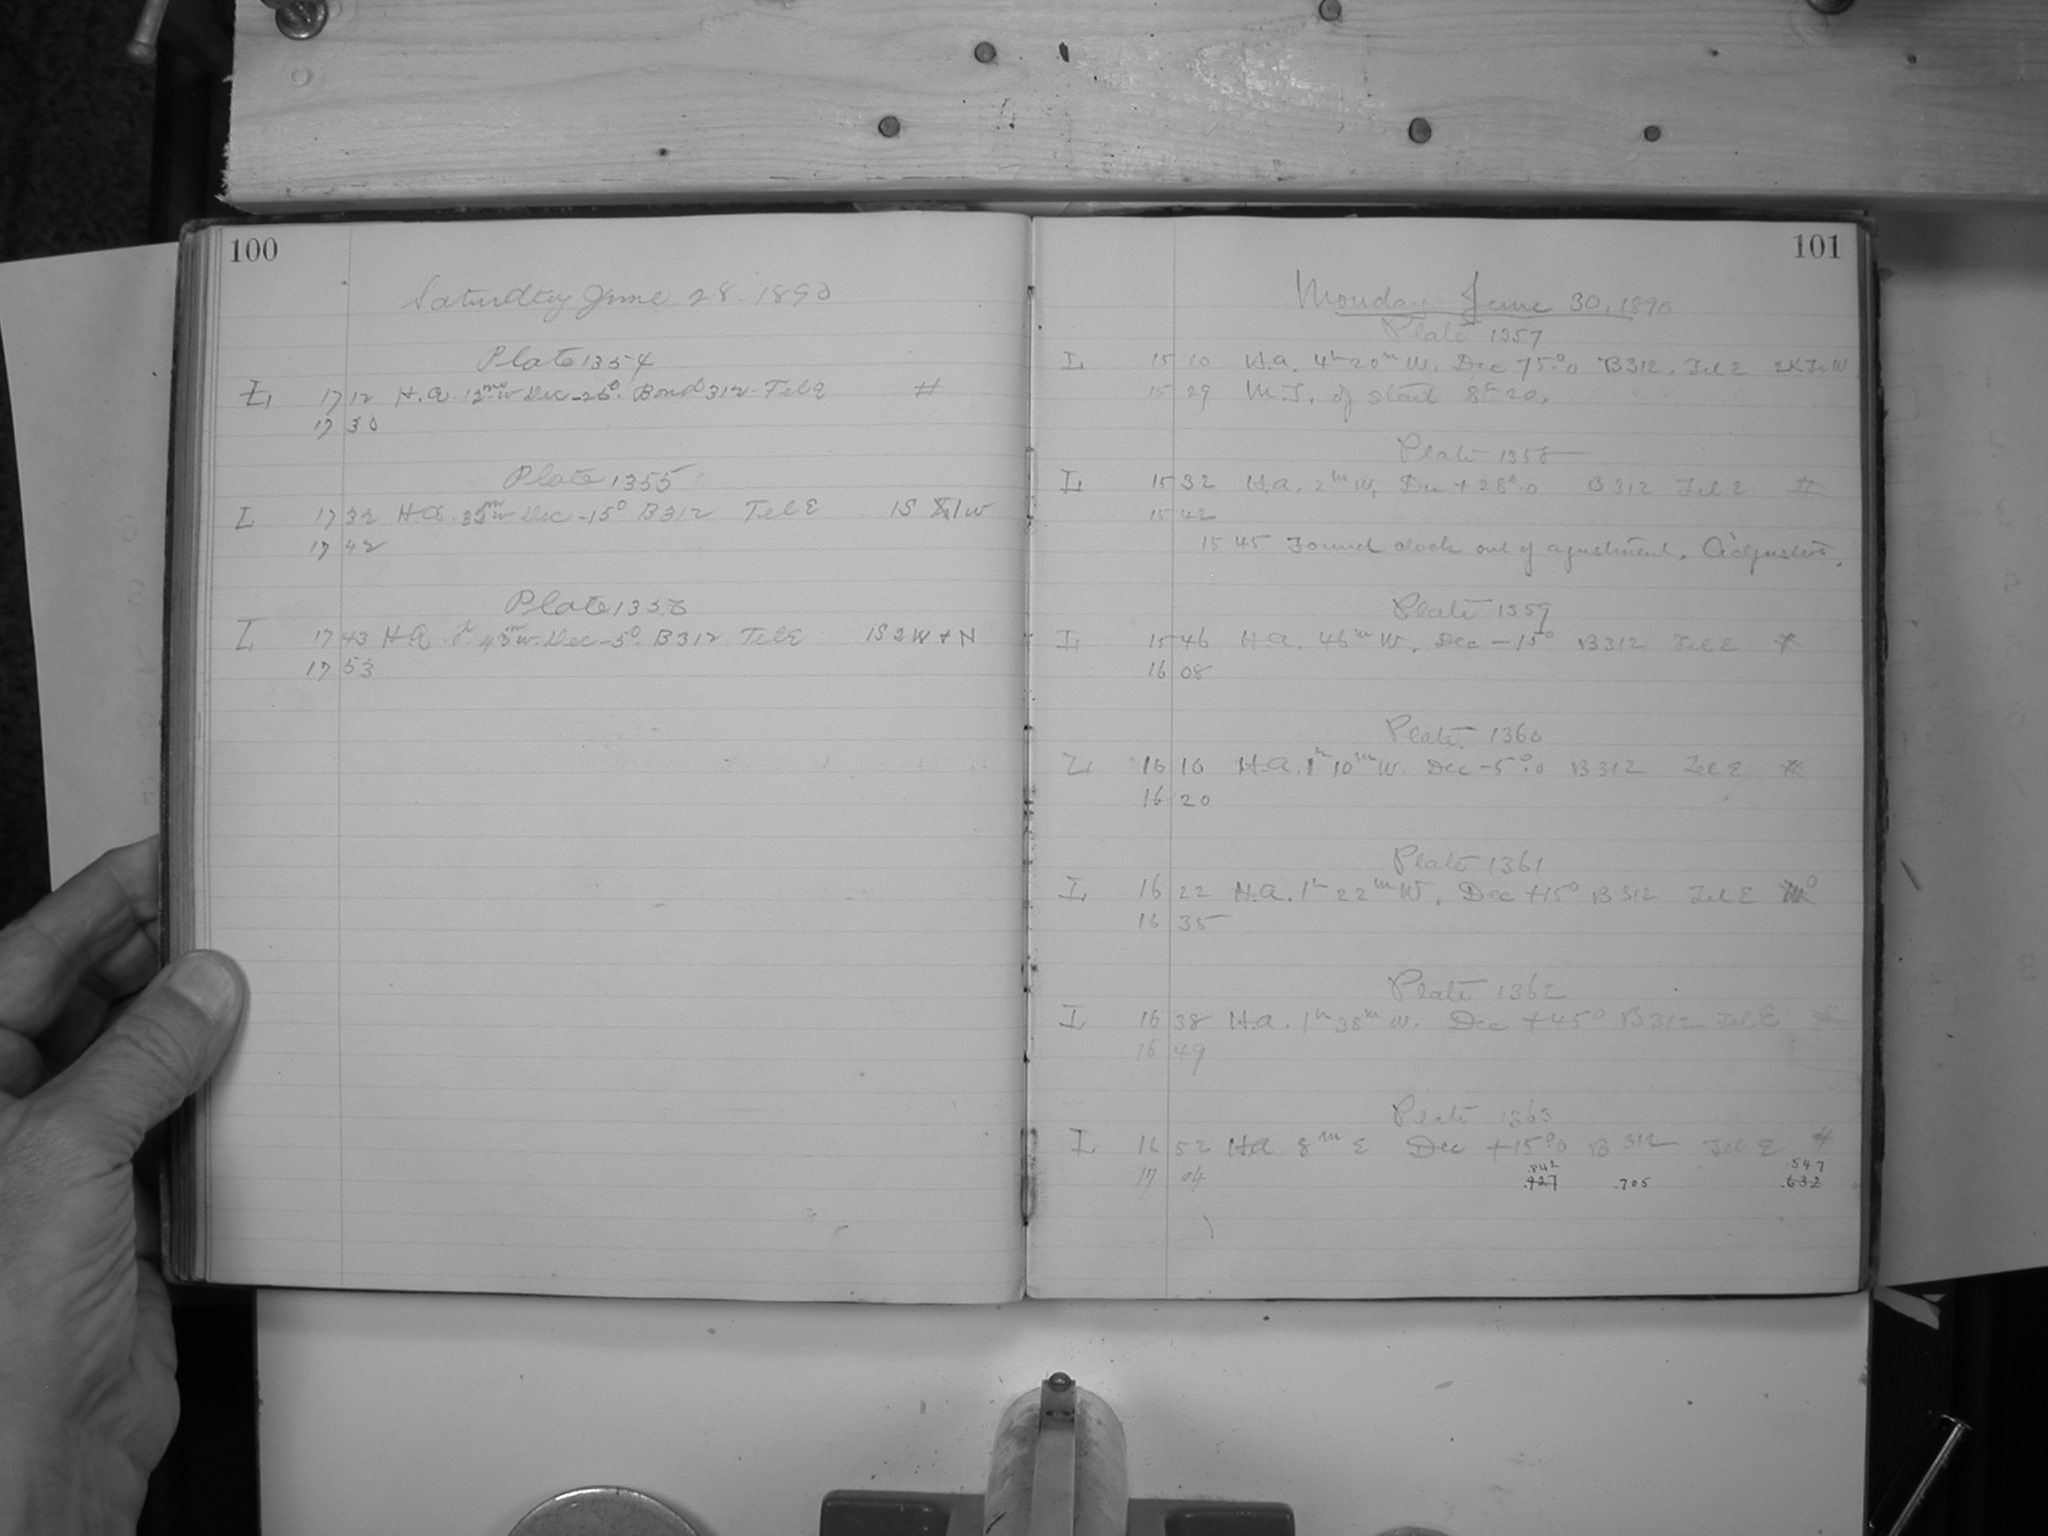 100
Saturday June 28. 1890
Plate 1354
I 17 12 H.a. 12m W Dec -25°. Bond 312. Tel E #
17 30
Plate 1355
I 17 32 H.a. 32m W Dec -15° B312 Tel E 1S 1W
17 42
Plate 1356
I 17 43 H.a. 43m W. Dec -5°. B312 Tel E 1S 2W + N
17 53
101
Monday June 30, 1890
Plate 1357
I 15 10 H.a. 4h 20m W. Dec 75°.0 B312. Tel E
15 29 M.T. of start 8h 20.
Plate 1358
I 15 32 H.a. 2m W. Dec +28°.0 B312 Tel E #
15 42
15 45 Found clock out of ajustment. Adjusted.
Plate 1359
I 15 46 H.a. 46m W. Dec -15° B312 Tel E
16 08
Plate 1360
I 16 10 H.a. 1h 10m W. Dec -5°.0 B312 Tel E
16 20
Plate 1361
I 16 22 H.a. 1h 22m W. Dec +15° B312 Tel E
16 35
Plate 1362
I 16 38 H.a. 1h 38m W. Dec +45° B312 Tel E
16 49
Plate 1363
I 16 52 H.a. 8m E Dec +15°.0 B 312 Tel E #
.842 .547
17 04 .427 .705 .632